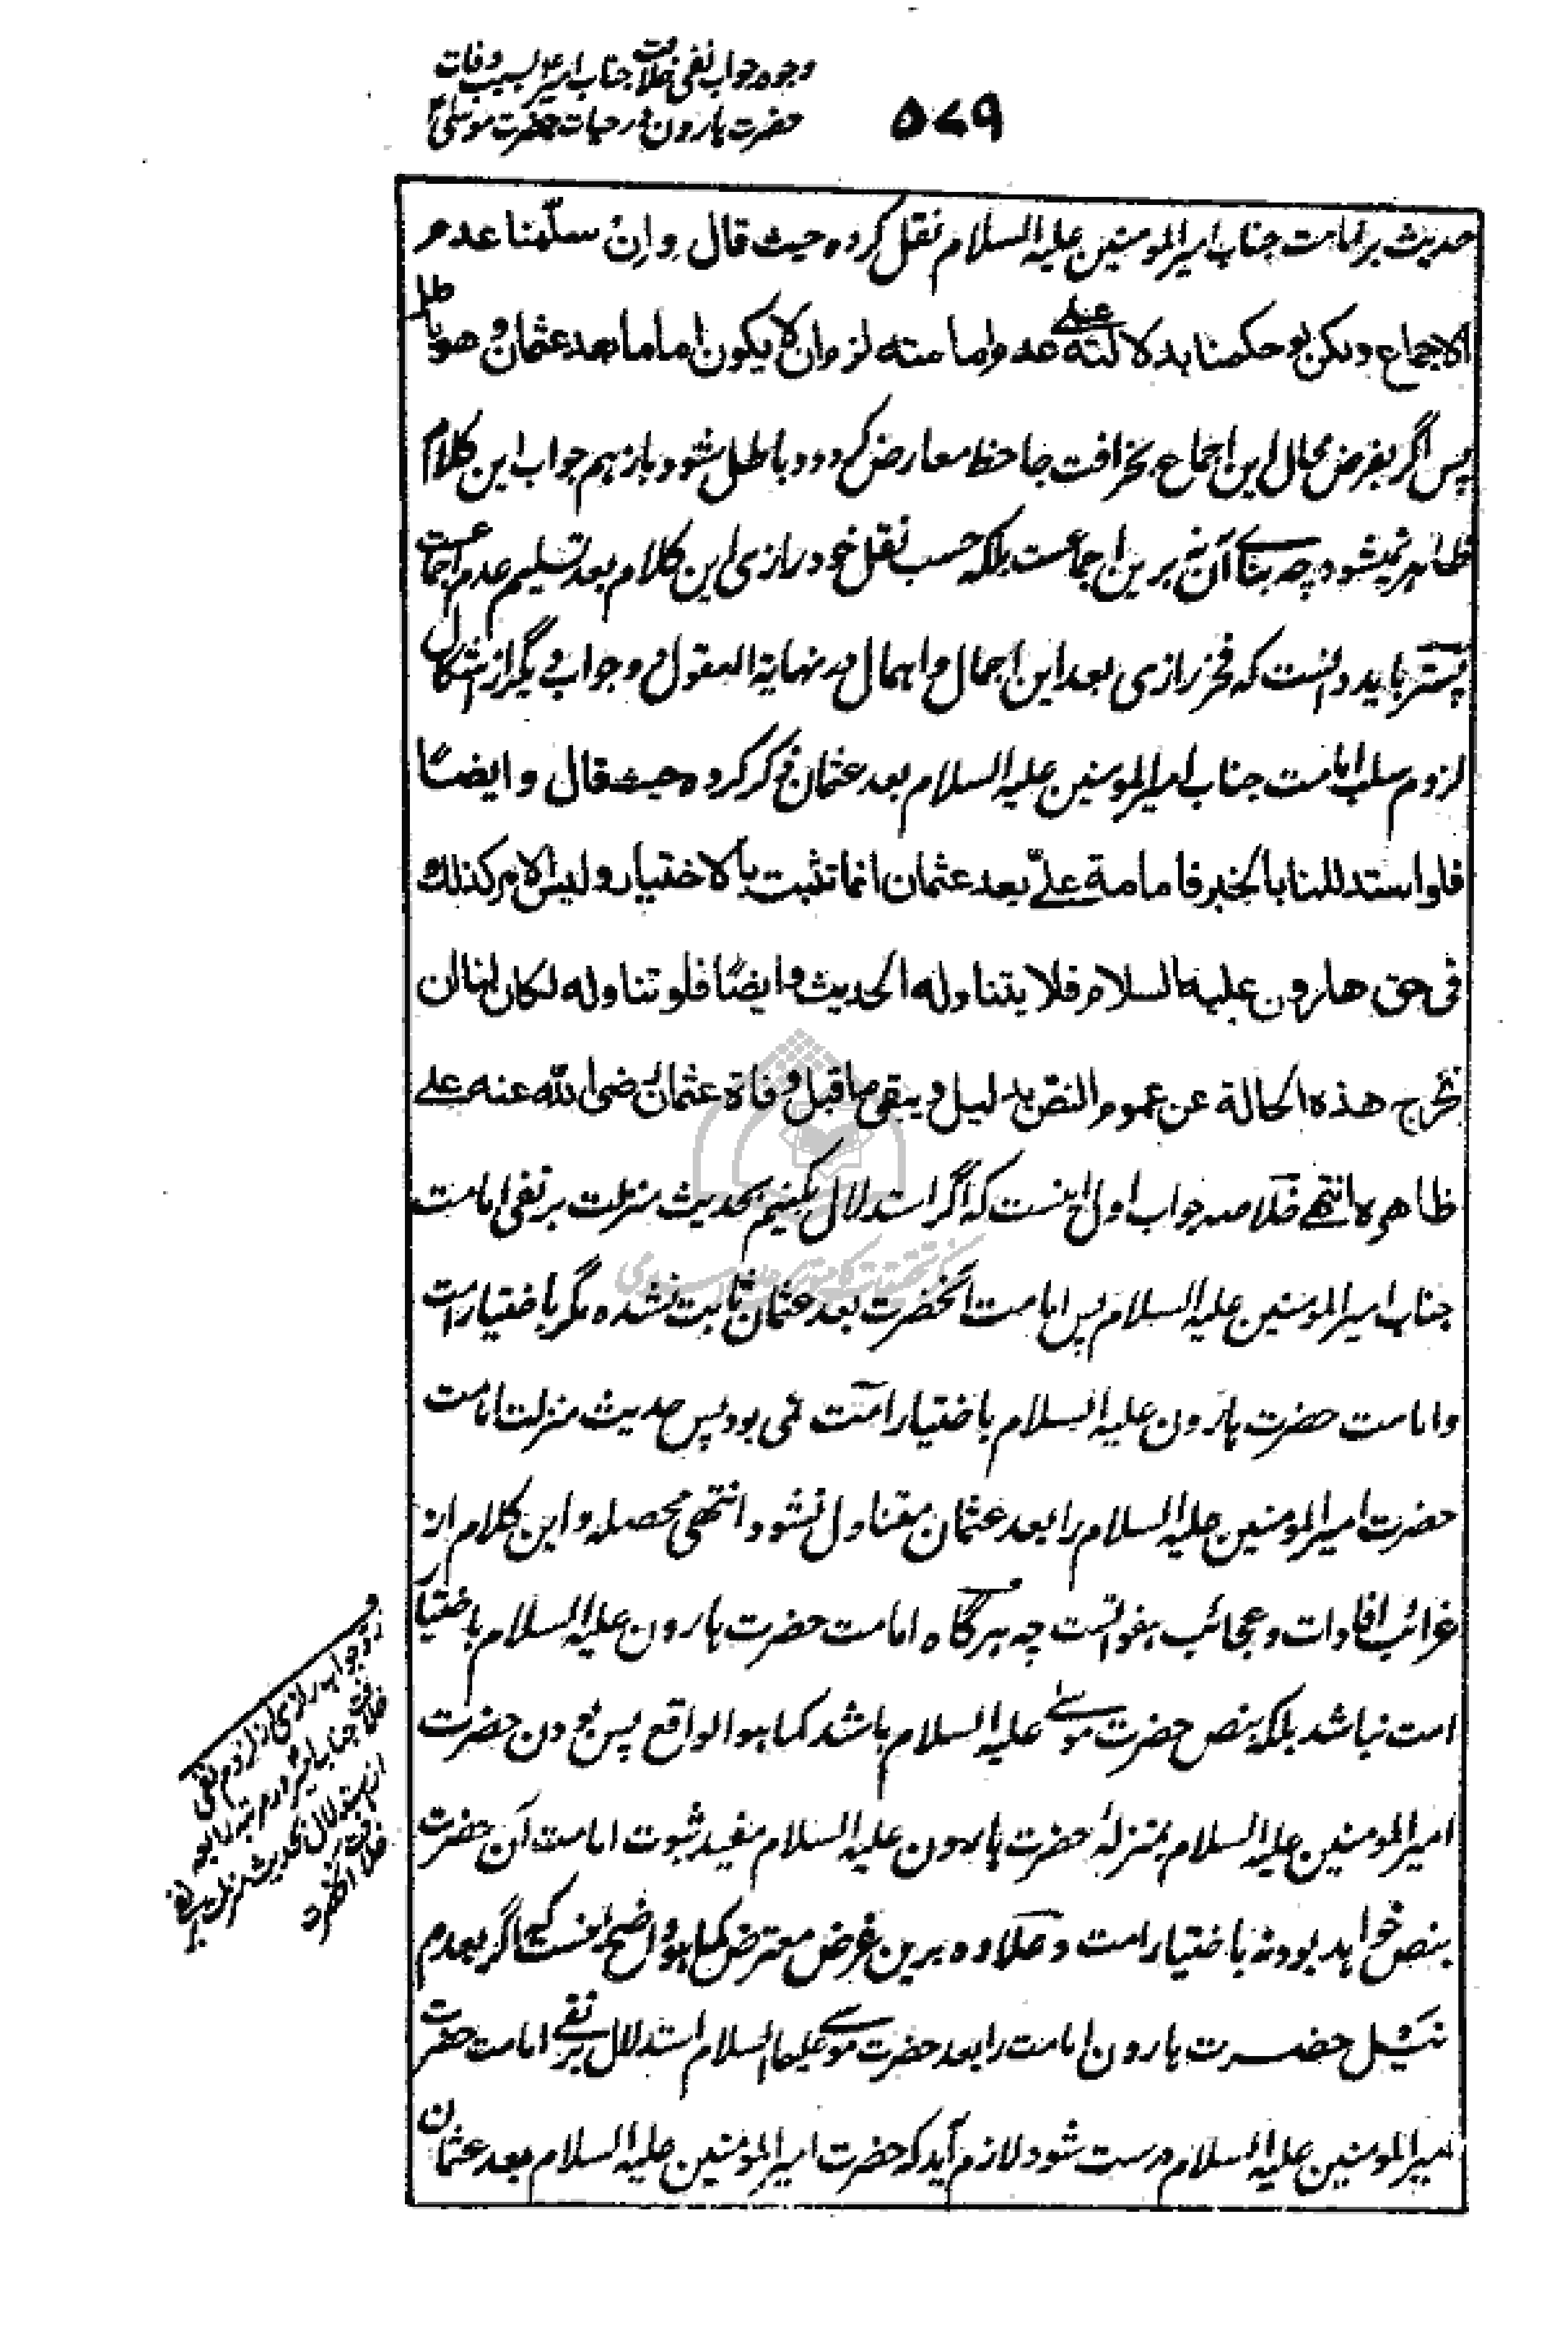 وجوه جواب نفی خلافت جناب امیر بسبب وفات
حضرت هارون در حیات حضرت موسی
۵۷۹
حدیث بر امامت جناب امیرالمومنین علیه السلام نقل کرده حیث قال و اِنْ سلّمنا عدم
الاجماع ولکن لو حکمنا بدلالته علی عدم امامته لزم ان لا یکون اماما بعد عثمان و هو باطل
پس اگر بفرض محال این اجماع بخرافت جاحظ معارض گردد و باطل شود باز هم جواب این کلام
ظاهر نمیشود چه بنای آن نه برین اجماعست بلکه حسب نقل خود رازی این کلام بعد تسلیم عدم اجماعست
پستر باید دانست که فخر رازی بعد این اجمال و اهمال در نهایة العقول دو جواب دیگر از اشکال
لزوم سلب امامت جناب امیرالمومنین علیه السلام بعد عثمان ذکر کرده حیث قال و ایضًا
فلو استدللنا بالخبر فامامة علیّ بعد عثمان انما تثبت بالاختیار و لیس الامر کذلک
فی حق هارون علیه السلام فلا یتناوله الحدیث و ایضًا فلو تناوله لکان لنا ان
نخرج هذه الحالة عن عموم النصّ بدلیل و یبقی ما قبل وفاة عثمان رضی الله عنه علی
ظاهره انتهی خلاصه جواب اول اینست که اگر استدلال بکنیم بحدیث منزلت بر نفی امامت
جناب امیرالمومنین علیه السلام پس امامت آنحضرت بعد عثمان ثابت نشده مگر باختیار امت
و امامت حضرت هارون علیه السلام باختیار امت نمی بود پس حدیث منزلت امامت
حضرت امیرالمومنین علیه السلام را بعد عثمان متناول نشود انتهی محصله و این کلام از
غرائب افادات و عجائب هفواتست چه هرگاه امامت حضرت هارون علیه السلام باختیار
امت نباشد بلکه بنص حضرت موسی علیه السلام باشد کما هو الواقع پس بودن حضرت
امیرالمومنین علیه السلام بمنزلهٔ حضرت هارون علیه السلام مفید ثبوت امامت آن حضرت
بنص خواهد بود نه باختیار امت و علاوه برین غرض معترض کما هو واضح اینست که اگر بعدم
نیل حضرت هارون امامت را بعد حضرت موسی علیهما السلام استدلال بر نفی امامت حضرت
امیرالمومنین علیه السلام درست شود لازم آید که حضرت امیرالمومنین علیه السلام بعد عثمان
رد جواب رازی از لزوم نفی
خلافت جناب امیر در مرتبه رابعه
از استدلال بحدیث منزلت بر نفی
خلافت آنحضرت